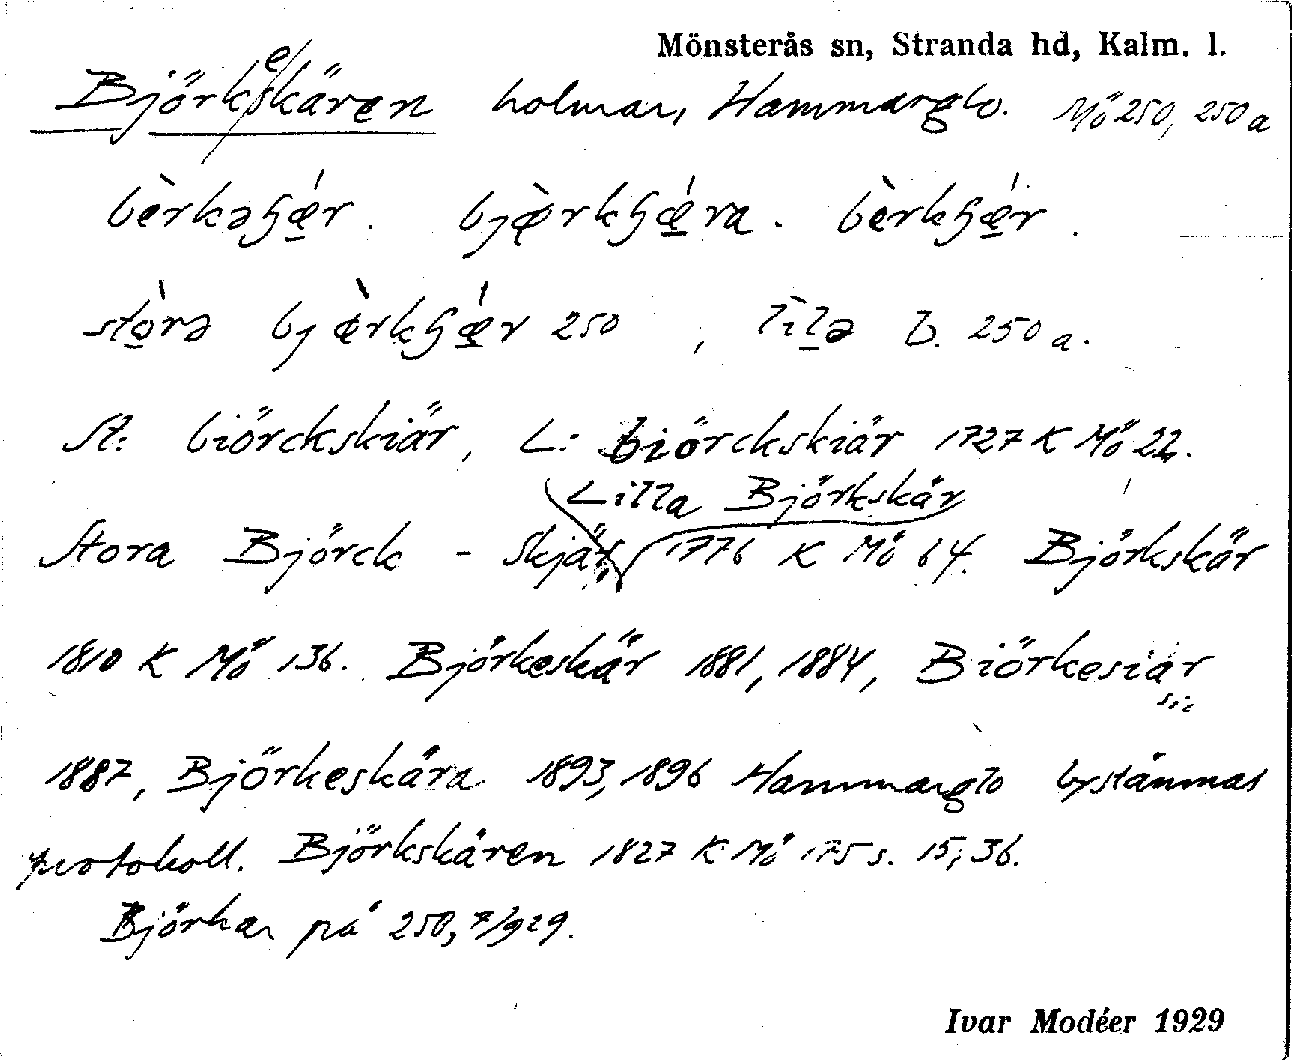 Mönsterås sn, Stranda hd, Kalm. l.
Björkeskären holmar, Hammarglo. Mö 250, 250 a
bè̀rkəʂǽr. bjœ̀rkʂǽra. bèrkʂǽr.
stòrə bjœ̀rkʂǽr 250, lìlə b. 250 a.
St: biörckskiär, L: biörckskiär 1727 K Mö 22.
Lilla Björkskär
Stora Björck - Skjär, 1776 K Mö 64. Björkskär
1810 K Mö 136. Björkeskär 1881, 1884, Biörkesiär
sic
1887, Björkeskära 1893, 1896 Hammarglo bystämmas
protokoll. Björkskären 1827 K Mö 175 s. 15, 36.
Björkar på 250, 7/929.
Ivar Modéer 1929